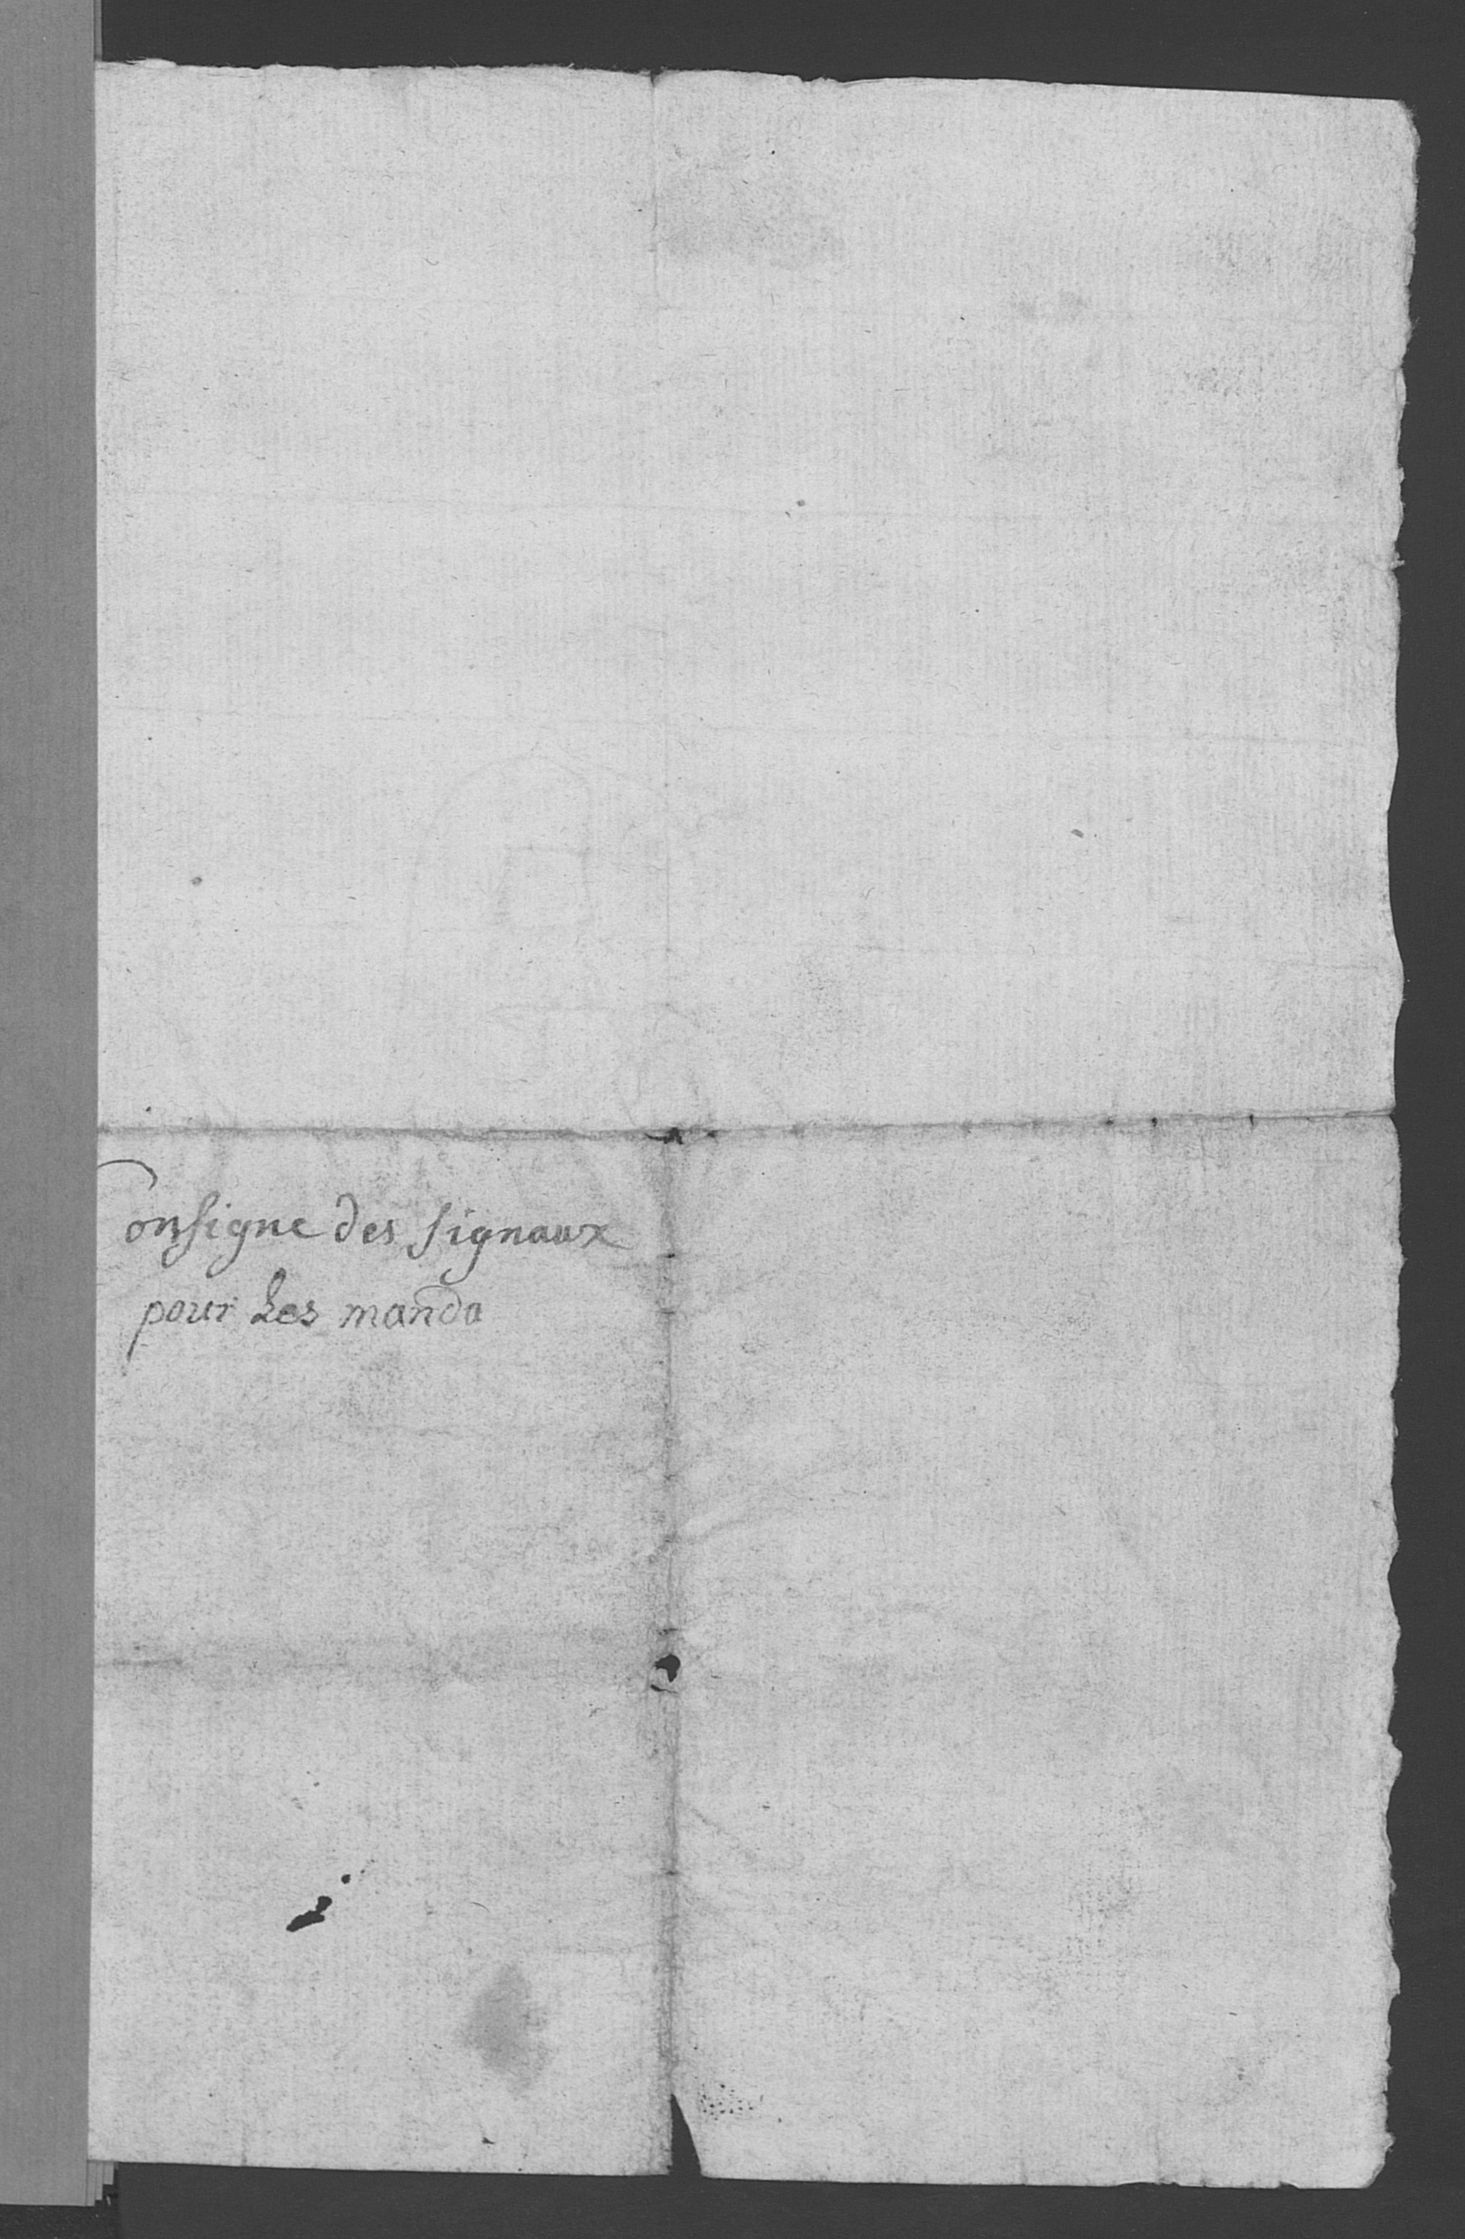 Consigne des signaux
pour Les manda